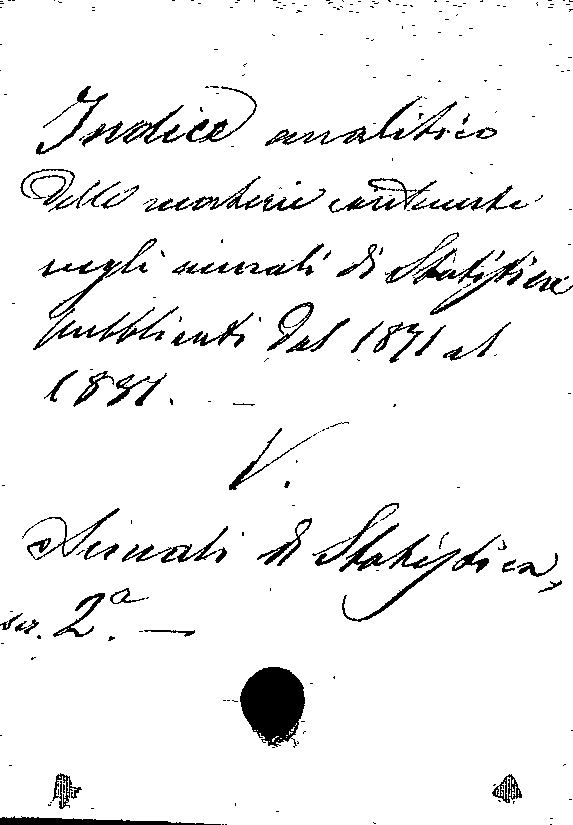 Indice analitico
delle materie contenute
negli annali di Statistica
pubblicati dal 1871 al
1881.
V.
Annali di Statistica,
ser. 2ª. —